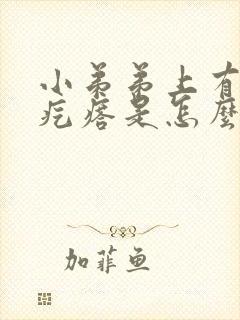 小弟弟上有
疙瘩是怎麼
加菲鱼